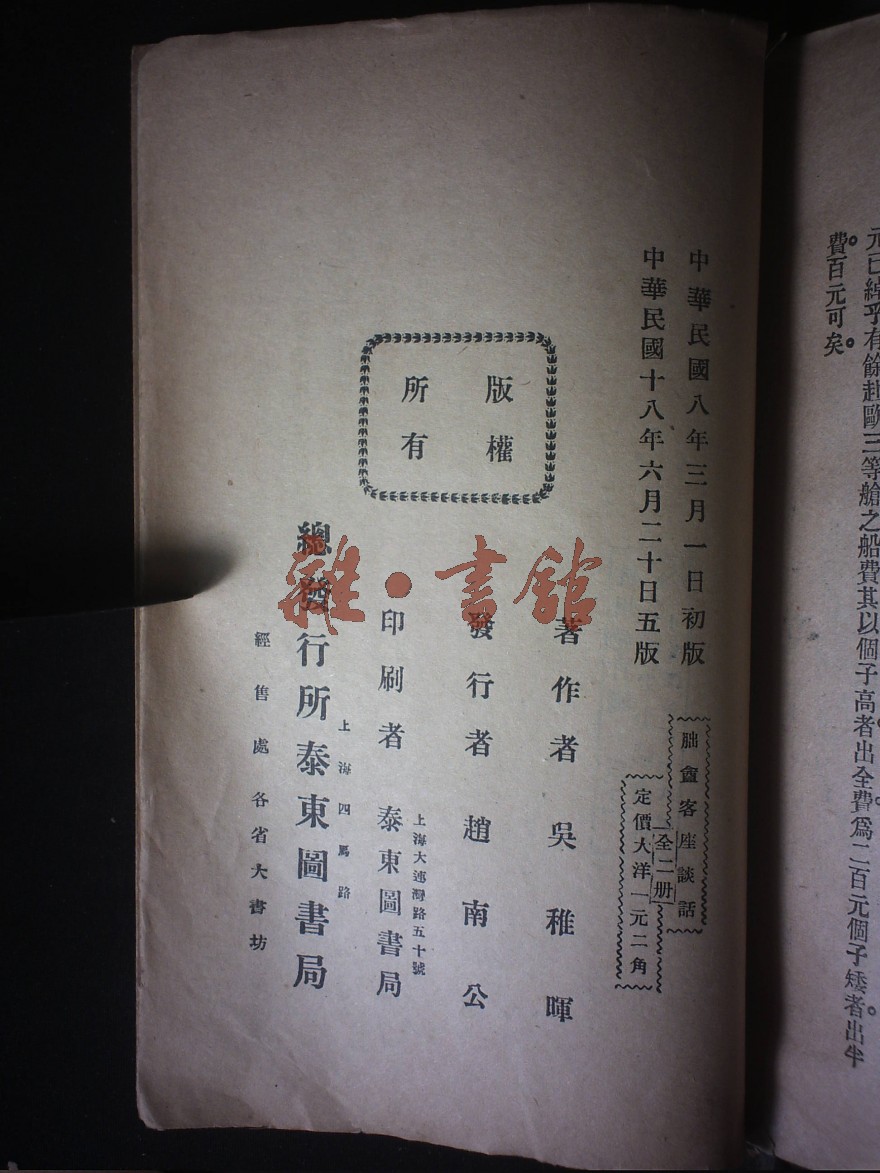 元已綽乎有餘赴歐三等艙之船費其以個子高者出全費爲二百元個子矮者出半
費百元可矣。
中華民國八年三月一日初版
中華民國十八年六月二十日五版
朏盦客座談話
全二册
定價大洋一元二角
版權
所有
著作者 吳稚暉
發行者 趙南公
上海大連灣路五十號
印刷者 泰東圖書局
上海四馬路
總發行所泰東圖書局
經售處各省大書坊
雜·書館